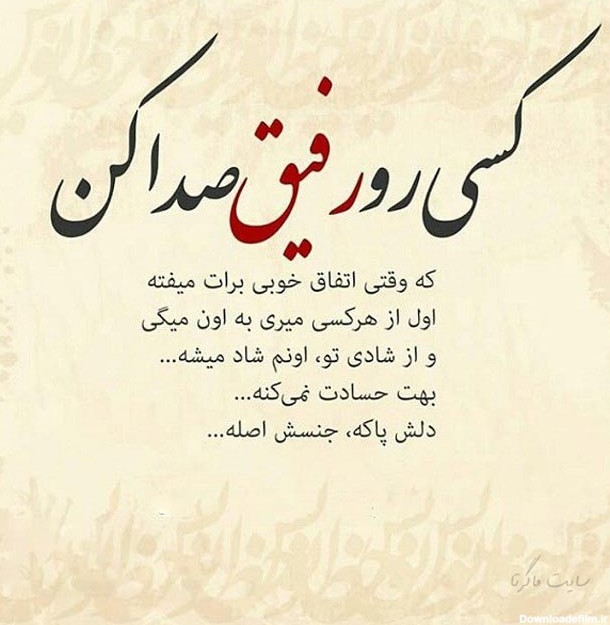 کسی رو رفیق صدا کن
که وقتی اتفاق خوبی برات میفته
اول از هرکسی میری به اون میگی
و از شادی تو، اونم شاد میشه...
بهت حسادت نمی‌کنه...
دلش پاکه، جنسش اصله...
سایت ماگرتا
Downloadefilm.ir